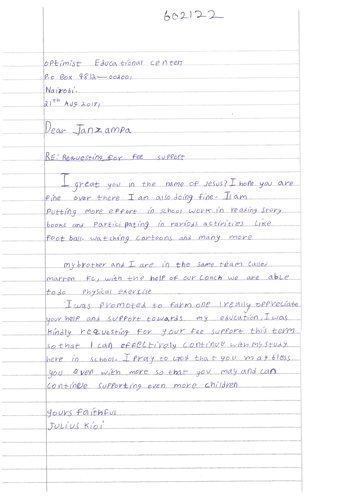 602122
Optimist Educational center
P.o Box 9812-00200,
Nairobi.
21TH Aug 2018,
Dear Janzampa
RE: Requesting for fee support
I great you in the name of Jesus? I hope you are
fine over there I am also doing fine. I am
putting more effort in school work in reading story
books and participating in various activities like
foot ball watching cartoons and many more
my brother and I are in the same team called
marron FC, with the help of our coach we are able
to do physical exercise
I was promoted to form one I really appreciate
your help and support towards my education. I was
kindly requesting for your fee support this term
so that I can effectively continue with my study
here in school. I pray to God that you may bless
you even with more so that you may and can
continue supporting even more children
yours faithful
Julius Kioi